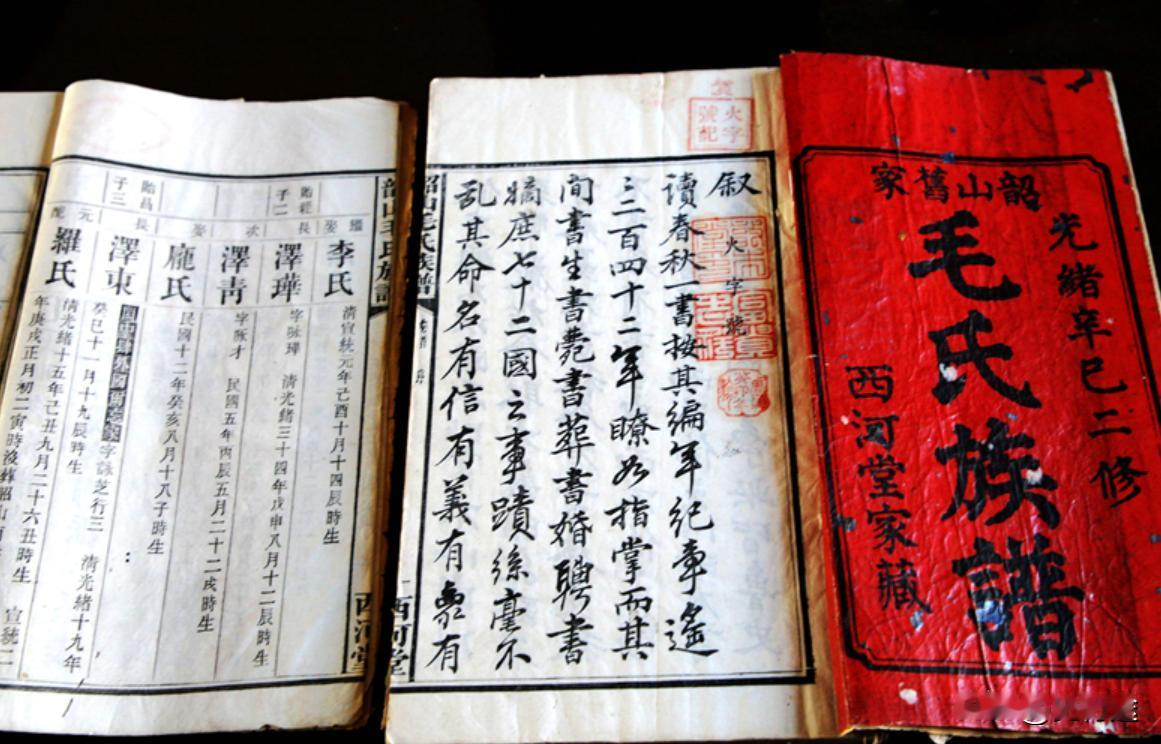 韶山舊家
光緒辛巳二修
毛氏族譜
西河堂家藏
火字號記
叙
火字號
讀春秋一書按其編年紀事遙
三百四十二年瞭如指掌而其
間書生書薨書葬書婚聘書
嫡庶七十二國之事蹟絲毫不
乱其命名有信有義有象有
韶山毛氏族譜
西河堂
韶山毛氏族譜
西河堂
繼娶
李氏
清宣統元年己酉十月十四辰時生
貽經子二
長
澤華
字咏璍 清光緒三十四年戊申八月十二辰時生
次
澤青
字咏才 民國五年丙辰五月二十二戌時生
娶
龐氏
民國十二年癸亥八月十八子時生
貽昌子三
長
澤東
字詠芝行三 清光緒十九年
癸巳十一月十九辰時生
元配
羅氏
清光緒十五年己丑九月二十六丑時生 宣統二
年庚戌正月初二寅時沒葬韶山